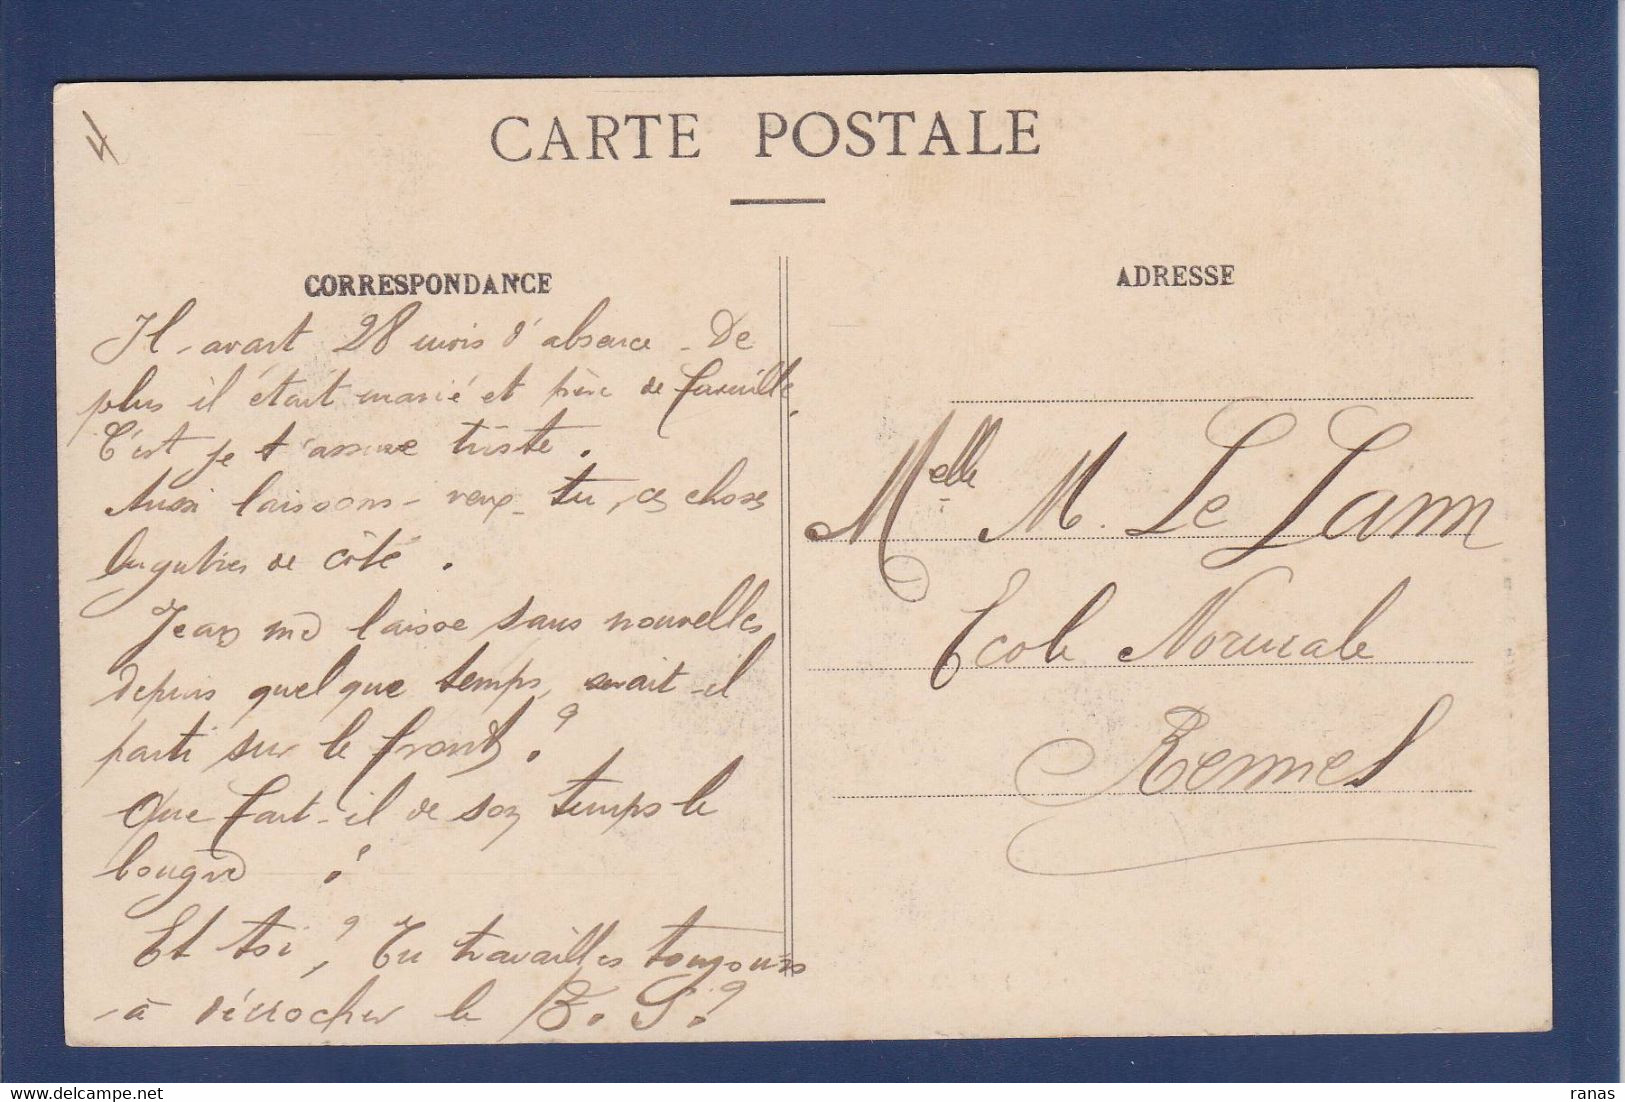 4
CARTE POSTALE
CORRESPONDANCE
Il avait 28 mois d'absence. De
plus il était marié et père de famille,
C'est je t'assure triste.
Aussi laissons-veux-tu, ces choses
lugubres de côté.
Jean me laisse sans nouvelles
depuis quelque temps, serait-il
parti sur le front ?
Que fait-il de son temps le
bougre ?
Et toi ? Tu travailles toujours
à décrocher le B. S. ?
ADRESSE
Melle M. Le Lann
Ecole Normale
Rennes
ranas